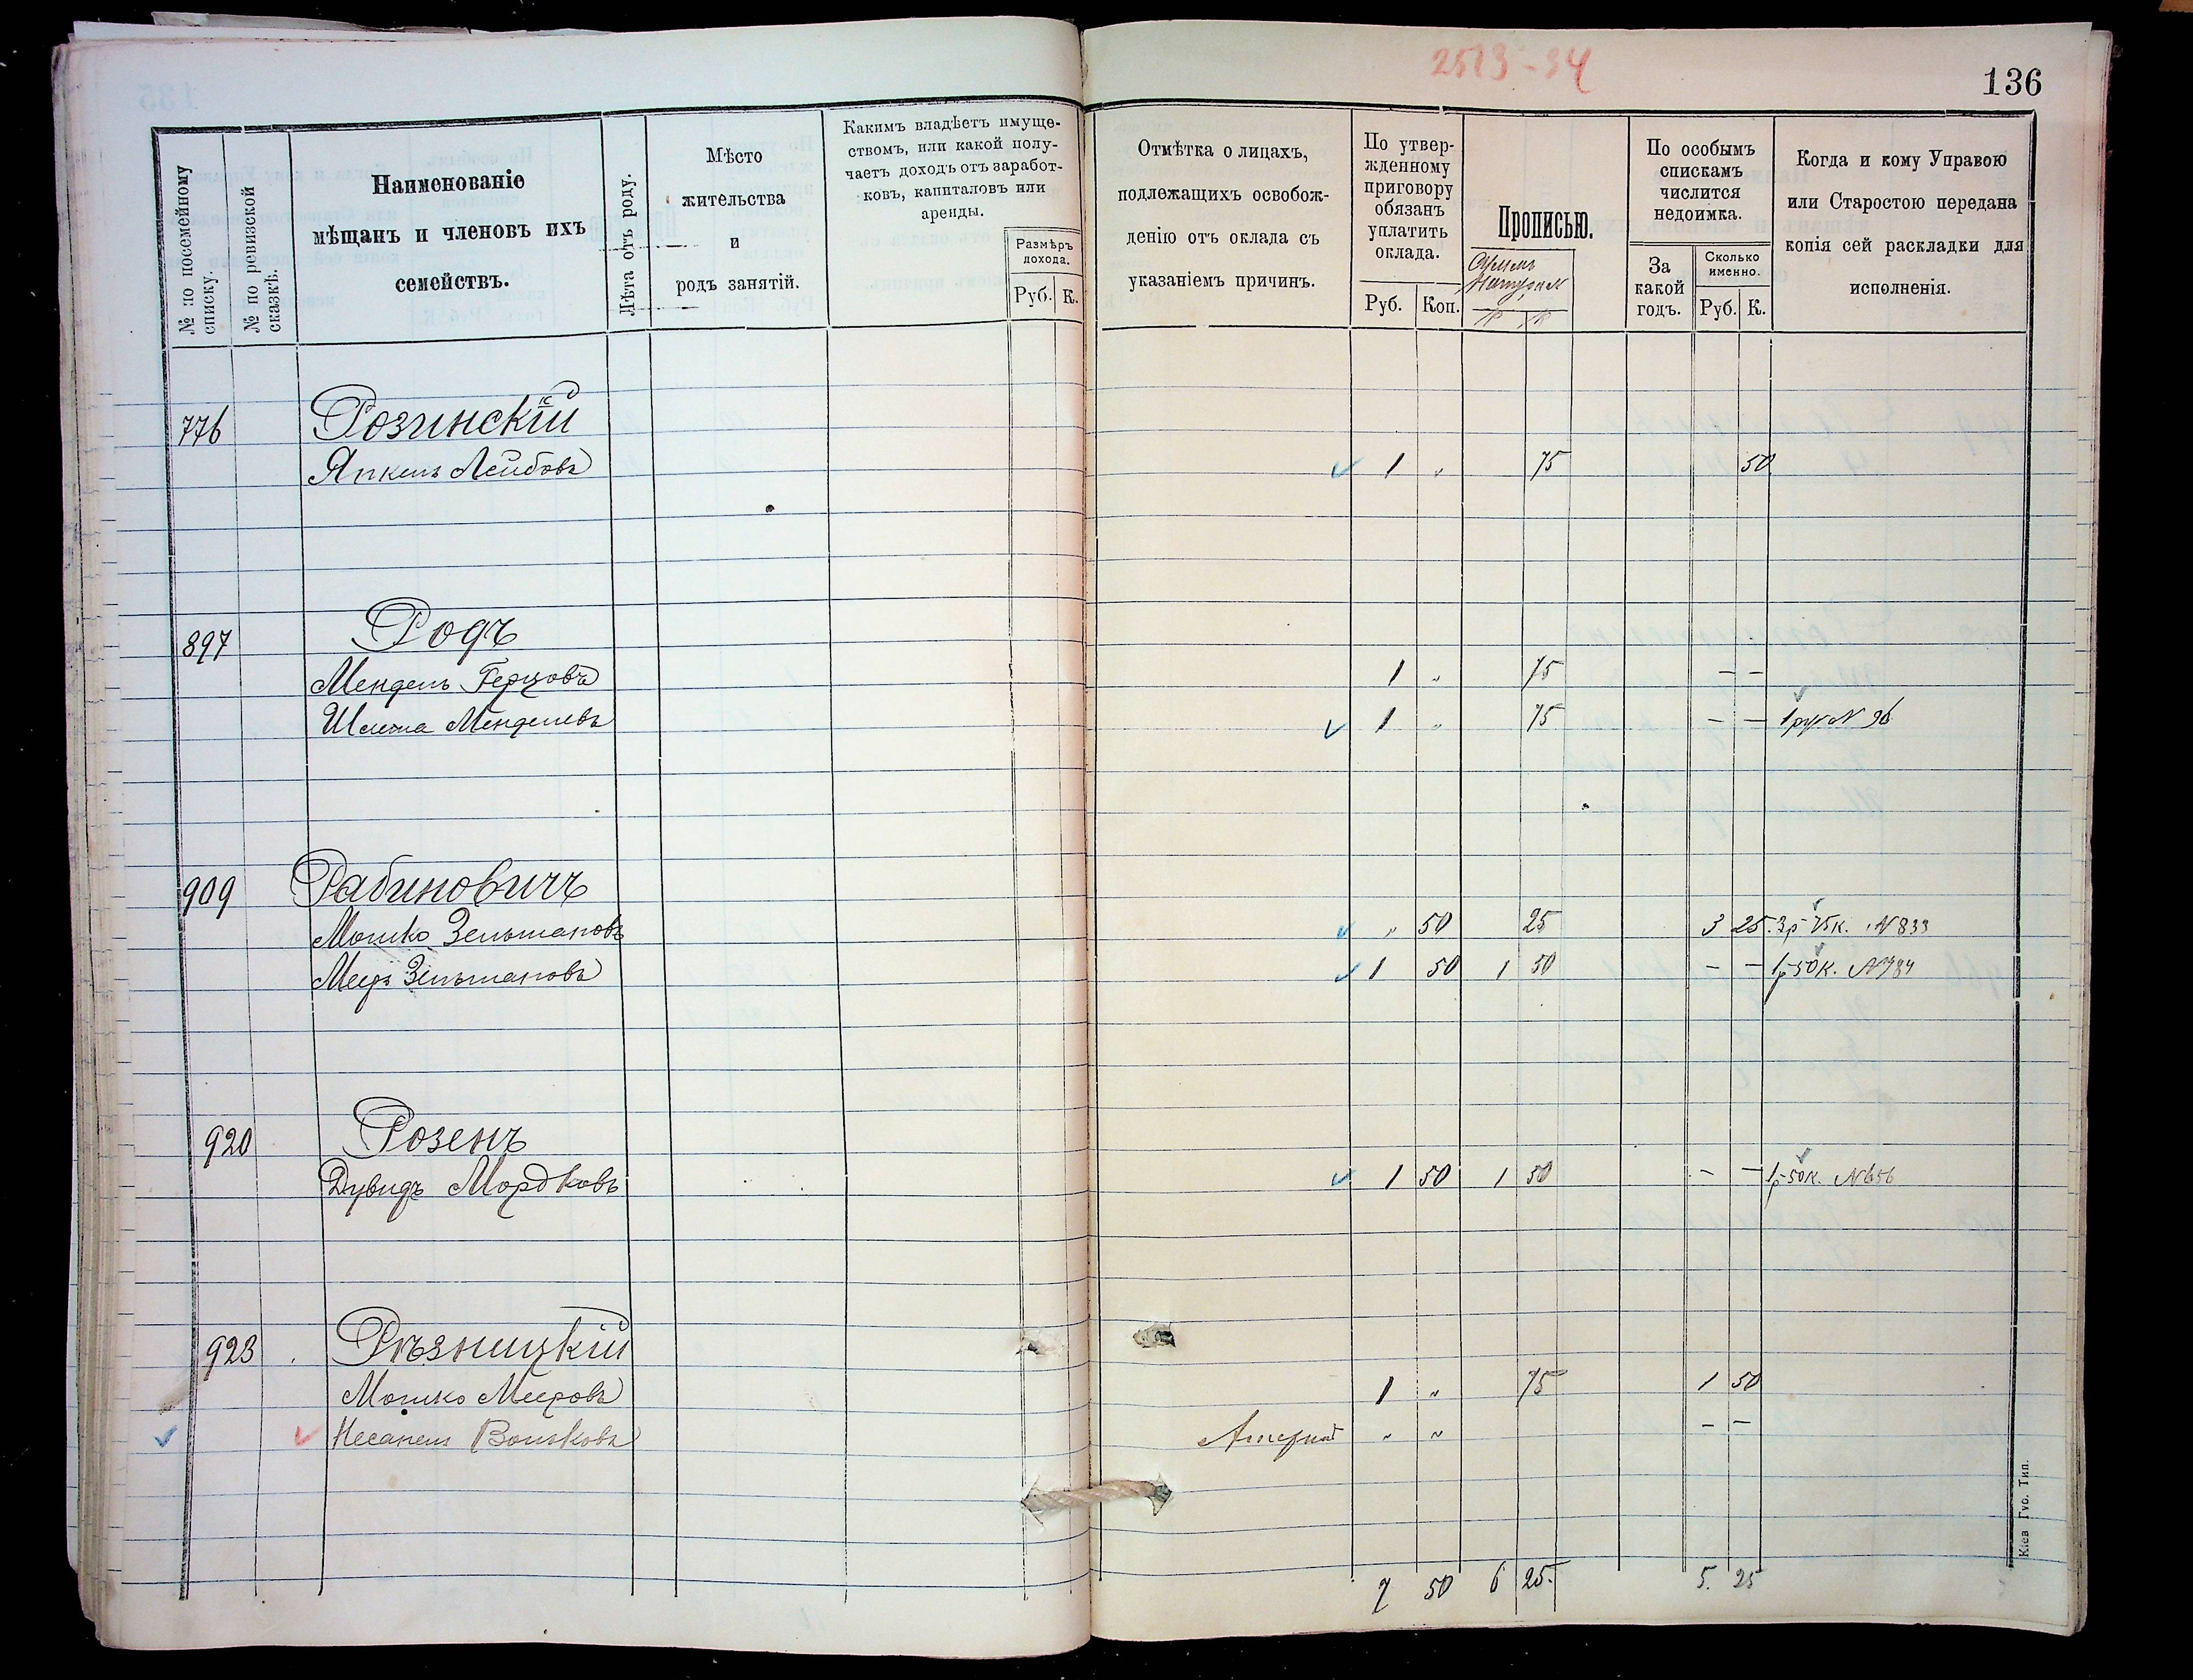 2513-34
136
№ по посемейному списку.
№ по ревизской сказкѣ.
Наименованіе
мѣщанъ и членовъ ихъ
семействъ.
Лѣта отъ роду.
Мѣсто
жительства
и
родъ занятій.
Какимъ владѣетъ имуще-
ствомъ, или какой полу-
чаетъ доходъ отъ заработ-
ковъ, капиталовъ или
аренды.
Размѣръ
дохода.
Руб. К.
Отмѣтка о лицахъ,
подлежащихъ освобож-
денію отъ оклада съ
указаніемъ причинъ.
По утвер-
жденному
приговору
обязанъ
уплатить
оклада.
Руб. Коп.
Прописью.
По особымъ
спискамъ
числится
недоимка.
За
какой
годъ.
Сколько
именно.
Руб. К.
Когда и кому Управою
или Старостою передана
копія сей раскладки для
исполненія.
776 Розинскій
Янкель Лейбовъ 1 „ 75 50
897 Родъ
Мендель Герцовъ 1 „ 75 – –
Шлема Менделевъ 1 „ 75 – – 1 ру № 96
909 Рабиновичъ
Мошко Зельмановъ „ 50 25 3 25. 3р 75к. № 833
Мееръ Зельмановъ 1 50 1 50 – – 1р 50к. № 784
920 Розенъ
Дувидъ Мордковъ 1 50 1 50 – – 1р 50к. № 656
923 Рѣзницкій
Мошко Мееровъ 1 „ 75 1 50
Несанель Вольковъ „ „ – –
7 50 6 25. 5. 25
Кіев Губ. Тип.